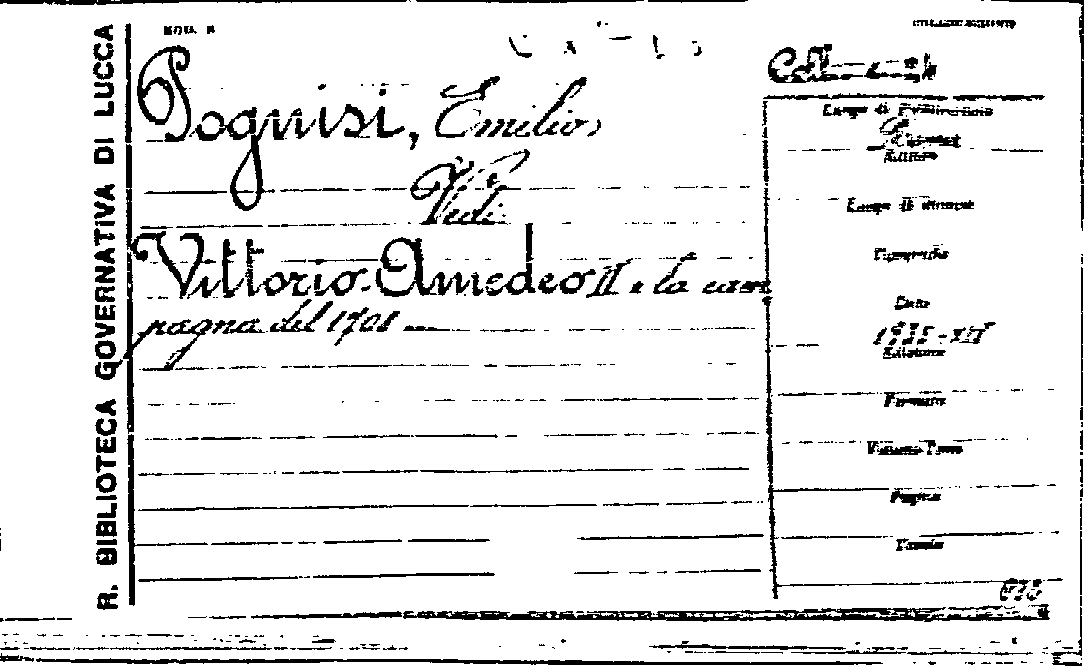 R. BIBLIOTECA GOVERNATIVA DI LUCCA
MOD. 
Pognisi, Emilio,
Vedi
Vittorio-Amedeo II e la cam
pagna del 1708
Luogo di Pubblicazione
Roma
Editore
Luogo di stampa
Tipografia
Data
1935-XIII
Edizione
Formato
Volume-Tomo
Pagine
Tavole